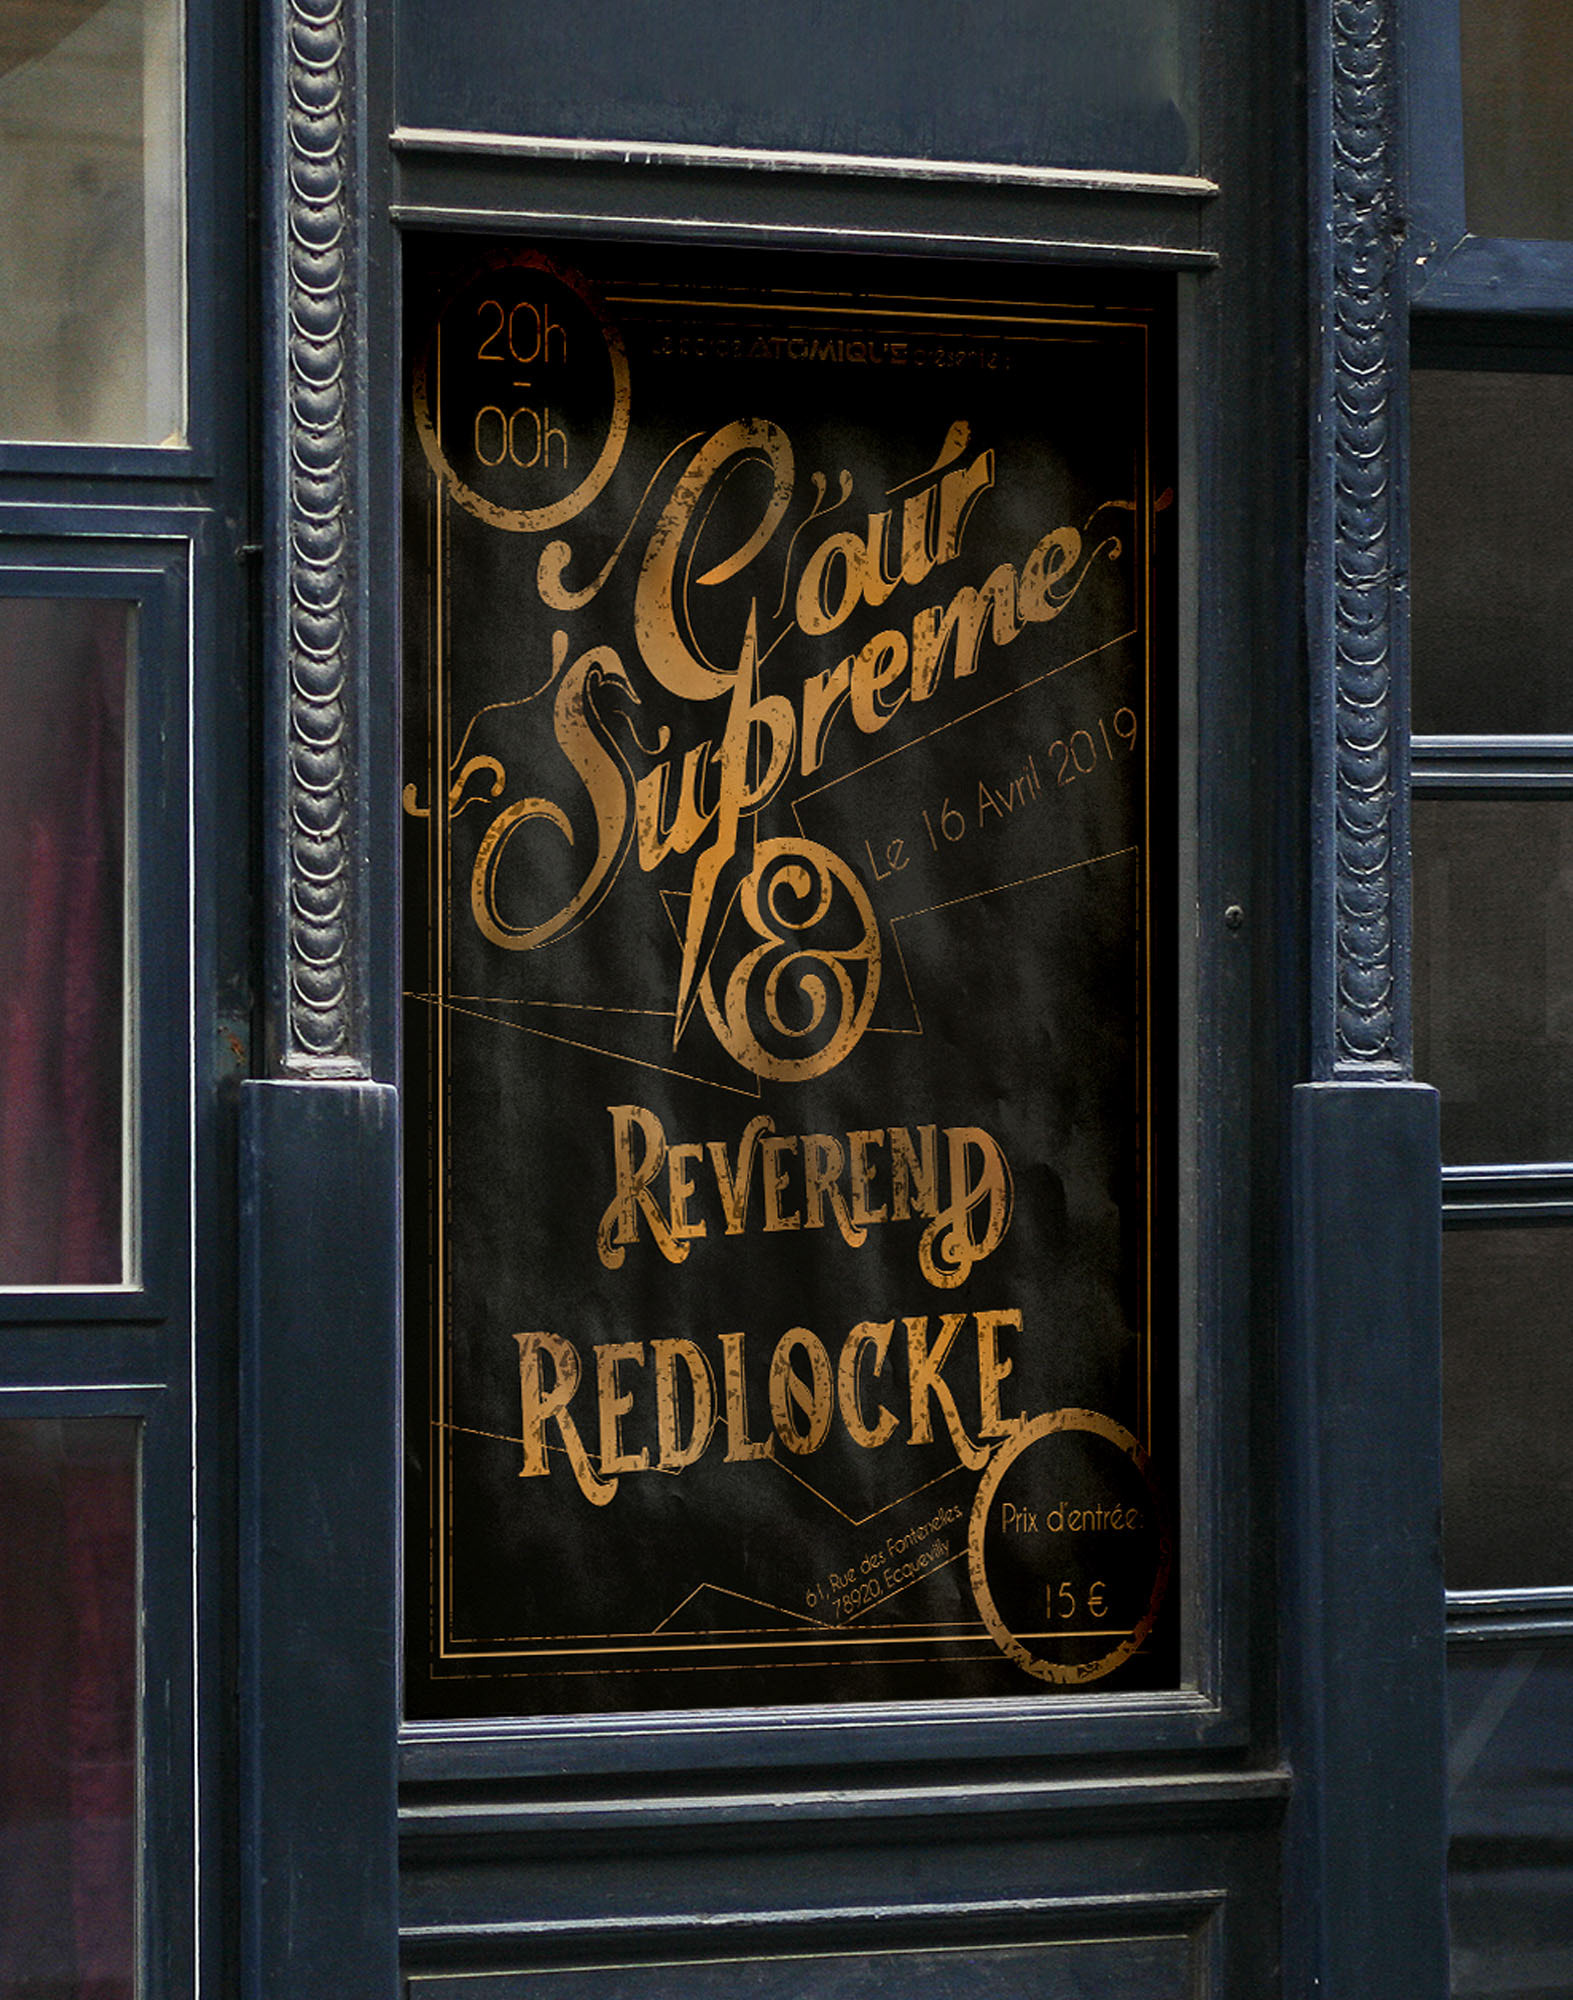 20h
-
00h
ATOMIQUE présente :
Cour
Supreme
Le 16 Avril 2019
&
REVEREND
REDLOCKE
61, Rue des Fontenelles
78920, Ecquevilly
Prix d'entrée:
15 €